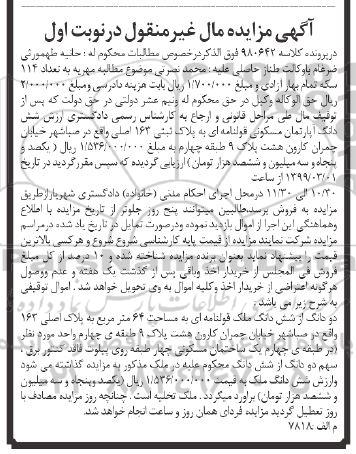 آگهی مزایده مال غیر منقول در نوبت اول
در پرونده کلاسه ۹۸۰۶۴۲ فوق الذکر درخصوص مطالبات محکوم له : حانیه طهمورثی
ضرغام باوکالت طناز حاصلی علیه : محمد نصرتی موضوع مطالبه مهریه به تعداد ۱۱۴
سکه تمام بهار آزادی و مبلغ ۱/۷۰۰/۰۰۰ ریال بابت هزینه دادرسی ومبلغ ۲/۰۰۰/۰۰۰
ریال حق الوکاله وکیل در حق محکوم له ونیم عشر دولتی در حق دولت که پس از
توقیف مال طی مراحل قانونی و ارجاع به کارشناس رسمی دادگستری ارزش شش
دانگ آپارتمان مسکونی قولنامه ای به پلاک ثبتی ۱۶۳ اصلی واقع در صباشهر خیابان
چمران کارون هشت پلاک ۹ طبقه چهارم به مبلغ ۱/۵۳۶/۰۰۰/۰۰۰ ریال ( یکصد و
پنجاه و سه میلیون و ششصد هزار تومان ) ارزیابی گردیده که سپس مقرر گردید در تاریخ
۱۳۹۹/۰۳/۰۱ از ساعت
۱۰/۳۰ الی ۱۱/۳۰ درمحل اجرای احکام مدنی (خانواده) دادگستری شهریارازطریق
مزایده به فروش برسد.طالبین میتوانند پنج روز جلوتر از تاریخ مزایده با اطلاع
وهماهنگی این اجرا از اموال بازدید نموده ودرصورت تمایل در تاریخ یاد شده درمراسم
مزایده شرکت نمایند مزایده از قیمت پایه کارشناسی شروع و هرکسی بالاترین
قیمت را پیشنهاد نماید بعنوان برنده مزایده شناخته شده و ۱۰ درصد از کل مبلغ
فروش فی المجلس از خریدار اخذ وباقی پس از گذشت یک هفته و عدم ووصول
هر گونه اعتراضی از خریدار اخذ وکلیه اموال به وی تحویل خواهد شد . اموال توقیفی
به شرح زیر می باشد.
دو دانگ از شش دانگ ملک قولنامه ای به مساحت ۶۴ متر مربع به پلاک اصلی ۱۶۳
واقع در صباشهر خیابان چمران کارون هشت پلاک ۹ طبقه ی چهارم واحد مورد نظر
(در طبقه ی چهارم یک ساختمان مسکونی چهار طبقه روی پیلوت فاقد کنتور برق ،
سهم دو دانگ از شش دانگ محکوم علیه در ملک مذکور به مزایده گذاشته می شود
وارزش شش دانگ ملک به قیمت ۱/۵۳۶/۰۰۰/۰۰۰ ریال (یکصد وپنجاه و سه میلیون
و ششصد هزار تومان) براورد میگردد . ملک تخلیه است . چنانچه روز مزایده مصادف با
روز تعطیل گردید مزایده فردای همان روز و ساعت انجام خواهد شد.
م الف :۷۸۱۸